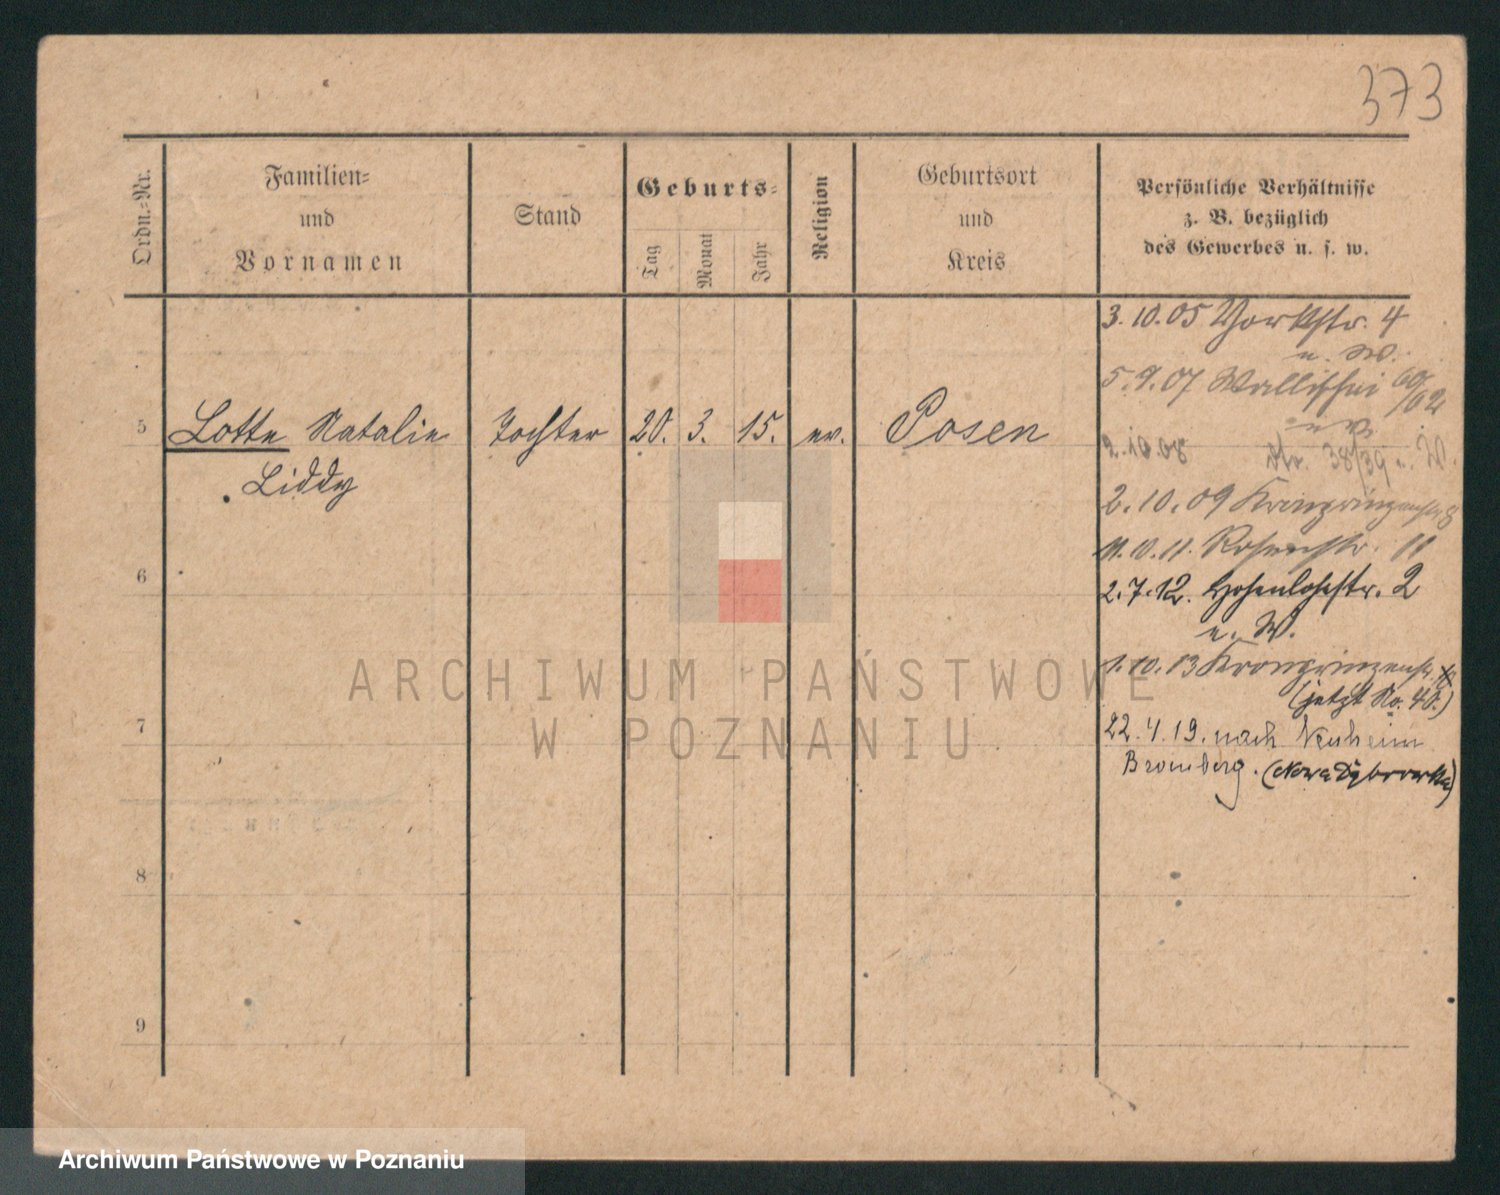 373
Ordn.-Nr.
Familien-
und
Vornamen
Stand
Geburts-
Tag
Monat
Jahr
Religion
Geburtsort
und
Kreis
Persönliche Verhältnisse
z. B. bezüglich
des Gewerbes u. s. w.
3.10.05 Yorkstr. 4
u. W.
5.9.07 Wallischei 60/62
u. W.
5 Lotte Natalie Tochter 20. 3. 15. ev. Posen
Liddy
2.10.08 38/39 u. W.
2.10.09 Kronprinzenstr. 8
11.10.11. Rosenstr. 11
6
2.7.12. Hohenlohestr. 2
u. W.
1.10.13 Kronprinzenstr.
(jetzt No. 40.)
7
22.4.19. nach Neuheim
Bromberg. (Nowa Dąbrowka)
8
9
ARCHIWUM PAŃSTWOWE
W POZNANIU
Archiwum Państwowe w Poznaniu